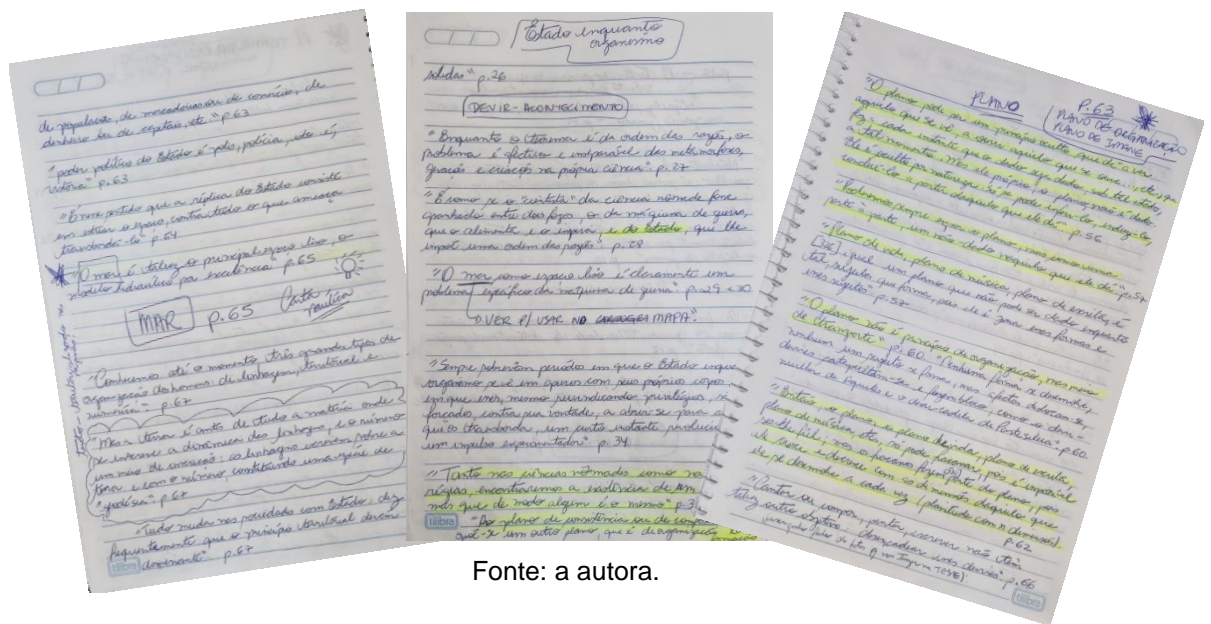 de populações, de mercadorias ou de comércio, de
dinheiro ou de capitais, etc" p.63
"poder político do Estado é polis, polícia, isto é,
vistoria" p.63
"É nesse sentido que a réplica do Estado consiste
em estriar o espaço, contra tudo o que ameaça
transbordá-lo" p.64
"O mar é talvez o principal espaço liso, o
modelo hidráulico por excelência" p.65
MAR p.65 Carta náutica
"Conhecemos até o momento três grandes tipos de
organização dos homens: de linhagem, territorial e
numérica" p.67
"Mas a terra é antes de tudo a matéria onde
se inscreve a dinâmica das linhagens, e o número
um meio de inscrição: as linhagens escrevem sobre a
terra e com o número, constituindo uma espécie de
geodésia" p.67
"Tudo muda nas sociedades com Estado: diz-
frequentemente que o princípio territorial devém
dominante" p.67
tilibra
Estado enquanto
organismo
sólidas" p.26
DEVIR-ACONTECIMENTO
"Enquanto o teorema é da ordem das razões, o
problema é afectivo e inseparável das metamorfoses,
gerações e criações na própria ciência" p.27
"É como se o "cientista" da ciência nômade fosse
apanhado entre dois fogos, o da máquina de guerra,
que o alimenta e o inspira, e do Estado, que lhe
impõe uma ordem das razões" p.28
"O mar como espaço liso é claramente um
problema específico da máquina de guerra" p.29 e 30
VER P/ USAR NO MAPA!
"Sempre sobrevêm períodos em que o Estado enqua
organismo se vê em apuros com seus próprios corpos
em que esses, mesmo reivindicando privilégios, são
forçados, contra sua vontade, a abrir-se para a
que os transborda, um curto instante
um impulso experimentador" p.34
"Tanto nas ciências nômades como na
régias, encontraremos a existência de um
mas que de modo algum é o mesmo" p.3
"Ao plano de consistência ou de compos
opõe-se um outro plano, que é de organização
tilibra
PLANO
P.63
PLANO DE ORGANIZAÇÃO
PLANO DE IMANE
"O plano pode ser um princípio oculto, que dá a ver
aquilo que se vê, a ouvir aquilo que se ouve... etc, que
faz a cada instante que o dado seja dado, sob tal estado,
a tal momento. Mas ele próprio, o plano, não é dado.
Ele é oculto por natureza. Só se pode inferi-lo, induzi-lo,
concluí-lo a partir daquilo que ele dá" p.56
"Podemos sempre expor o plano como uma
parte à parte, um não-dado naquilo que ele dá" p.57
"Plano de vida, plano de música, plano de escrita, é
[sic] igual: um plano que não pode ser dado enquanto
tal, pois ele é para essas formas e
esses sujeitos" p.57
"O plano não é princípio de organização, mas meio
de transporte" p.60. "Nenhuma forma se desenvolve,
nenhum sujeito se forma, mas afetos deslocam-se,
devires catapultam-se e fazem bloco, como o devir-
mulher de Aquiles e o devir-cadela de Pentesileia" p.60
"Então, o plano, o plano de vida, plano de escrita,
plano de música, etc, só pode fracassar, pois é impossível
ser-lhe fiel; mas os fracassos fazem parte do plano, pois
ele cresce e decresce com as dimensões daquilo que
ele desenvolve a cada vez (planitude com n dimensões)
p.62
"Cantar ou compor, pintar, escrever não têm
talvez outro objetivo: desencadear esses devires" p.66
tilibra
Fonte: a autora.